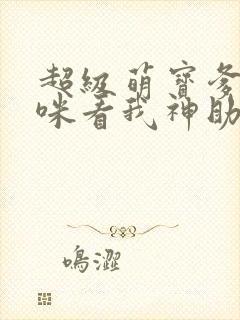 超級萌寶爹
咪看我神助
鳴澀